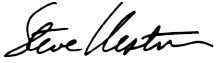 Steve Weston